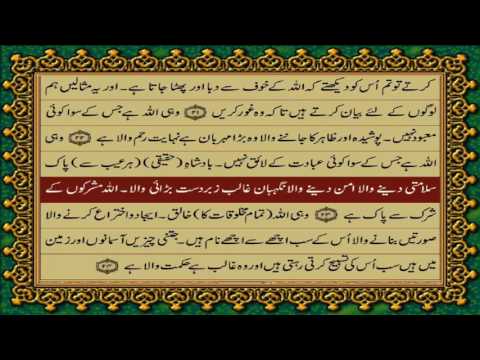 کرتے تو تم اُس کو دیکھتے کہ اللہ کے خوف سے دبا اور پھٹا جاتا ہے۔ اور یہ مثالیں ہم
لوگوں کے لئے بیان کرتے ہیں تا کہ وہ غور کریں ﴿۲۱﴾ وہی اللہ ہے جس کے سوا کوئی
معبود نہیں۔ پوشیدہ اور ظاہر کا جاننے والا وہ بڑا مہربان ہے نہایت رحم والا ہے ﴿۲۲﴾ وہی
اللہ ہے جس کے سوا کوئی عبادت کے لائق نہیں۔ بادشاہ (حقیقی) (ہر عیب سے) پاک
سلامتی دینے والا امن دینے والا نگہبان غالب زبردست بڑائی والا۔ اللہ مشرکوں کے
شرک سے پاک ہے ﴿۲۳﴾ وہی اللہ (تمام مخلوقات کا) خالق۔ ایجاد و اختراع کرنے والا
صورتیں بنانے والا اُس کے سب اچھے سے اچھے نام ہیں۔ جتنی چیزیں آسمانوں اور زمین
میں ہیں سب اُس کی تسبیح کرتی رہتی ہیں اور وہ غالب ہے حکمت والا ہے ﴿۲۴﴾